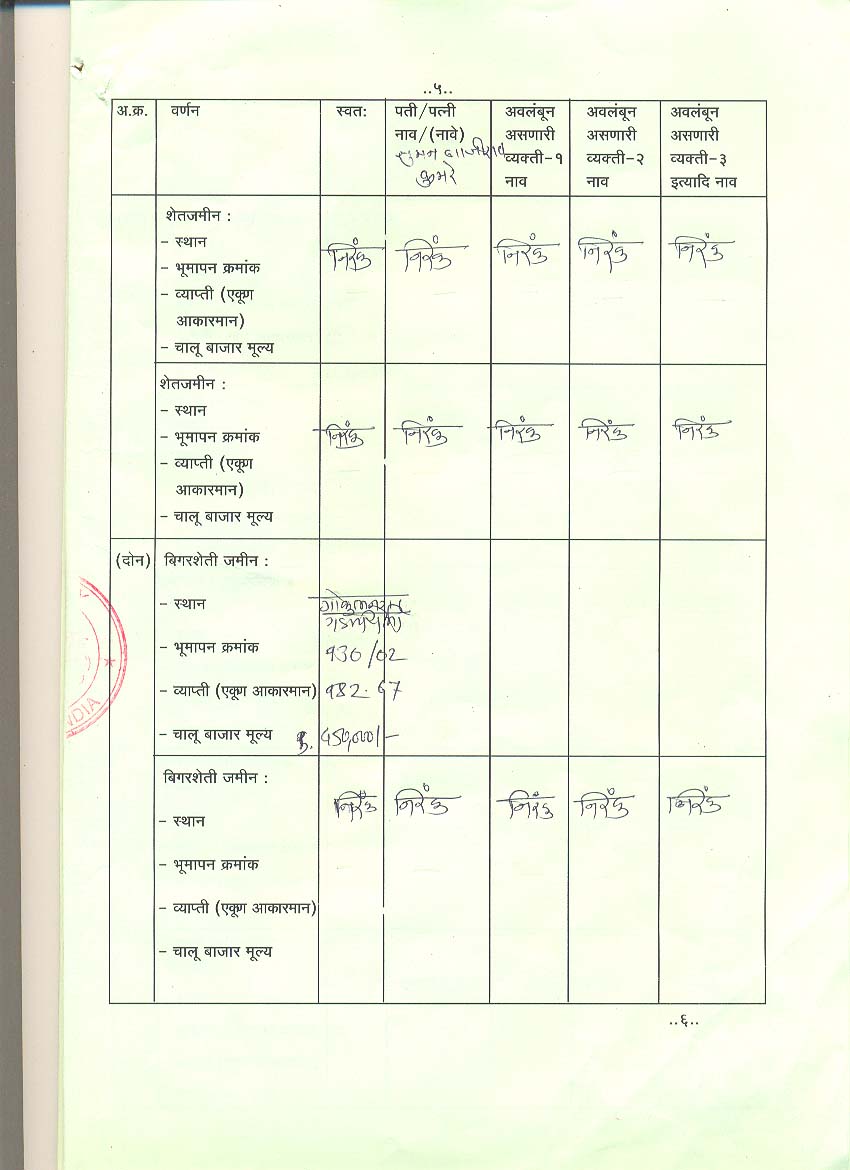 ..५..
अ.क्र. वर्णन स्वत: पती/पत्नी नाव/(नावे) अवलंबून असणारी व्यक्ती-१ नाव अवलंबून असणारी व्यक्ती-२ नाव अवलंबून असणारी व्यक्ती-३ इत्यादि नाव
सुमन
शेतजमीन :
- स्थान निरंक निरंक निरंक निरंक निरंक
- भूमापन क्रमांक
- व्याप्ती (एकूण
आकारमान)
- चालू बाजार मूल्य
शेतजमीन :
- स्थान
- भूमापन क्रमांक निरंक निरंक निरंक निरंक निरंक
- व्याप्ती (एकूण
आकारमान)
- चालू बाजार मूल्य
(दोन) बिगरशेती जमीन :
- स्थान
- भूमापन क्रमांक
- व्याप्ती (एकूण आकारमान)
- चालू बाजार मूल्य रु.
बिगरशेती जमीन :
निरंक निरंक निरंक निरंक निरंक
- स्थान
- भूमापन क्रमांक
- व्याप्ती (एकूण आकारमान)
- चालू बाजार मूल्य
INDIA
..६..